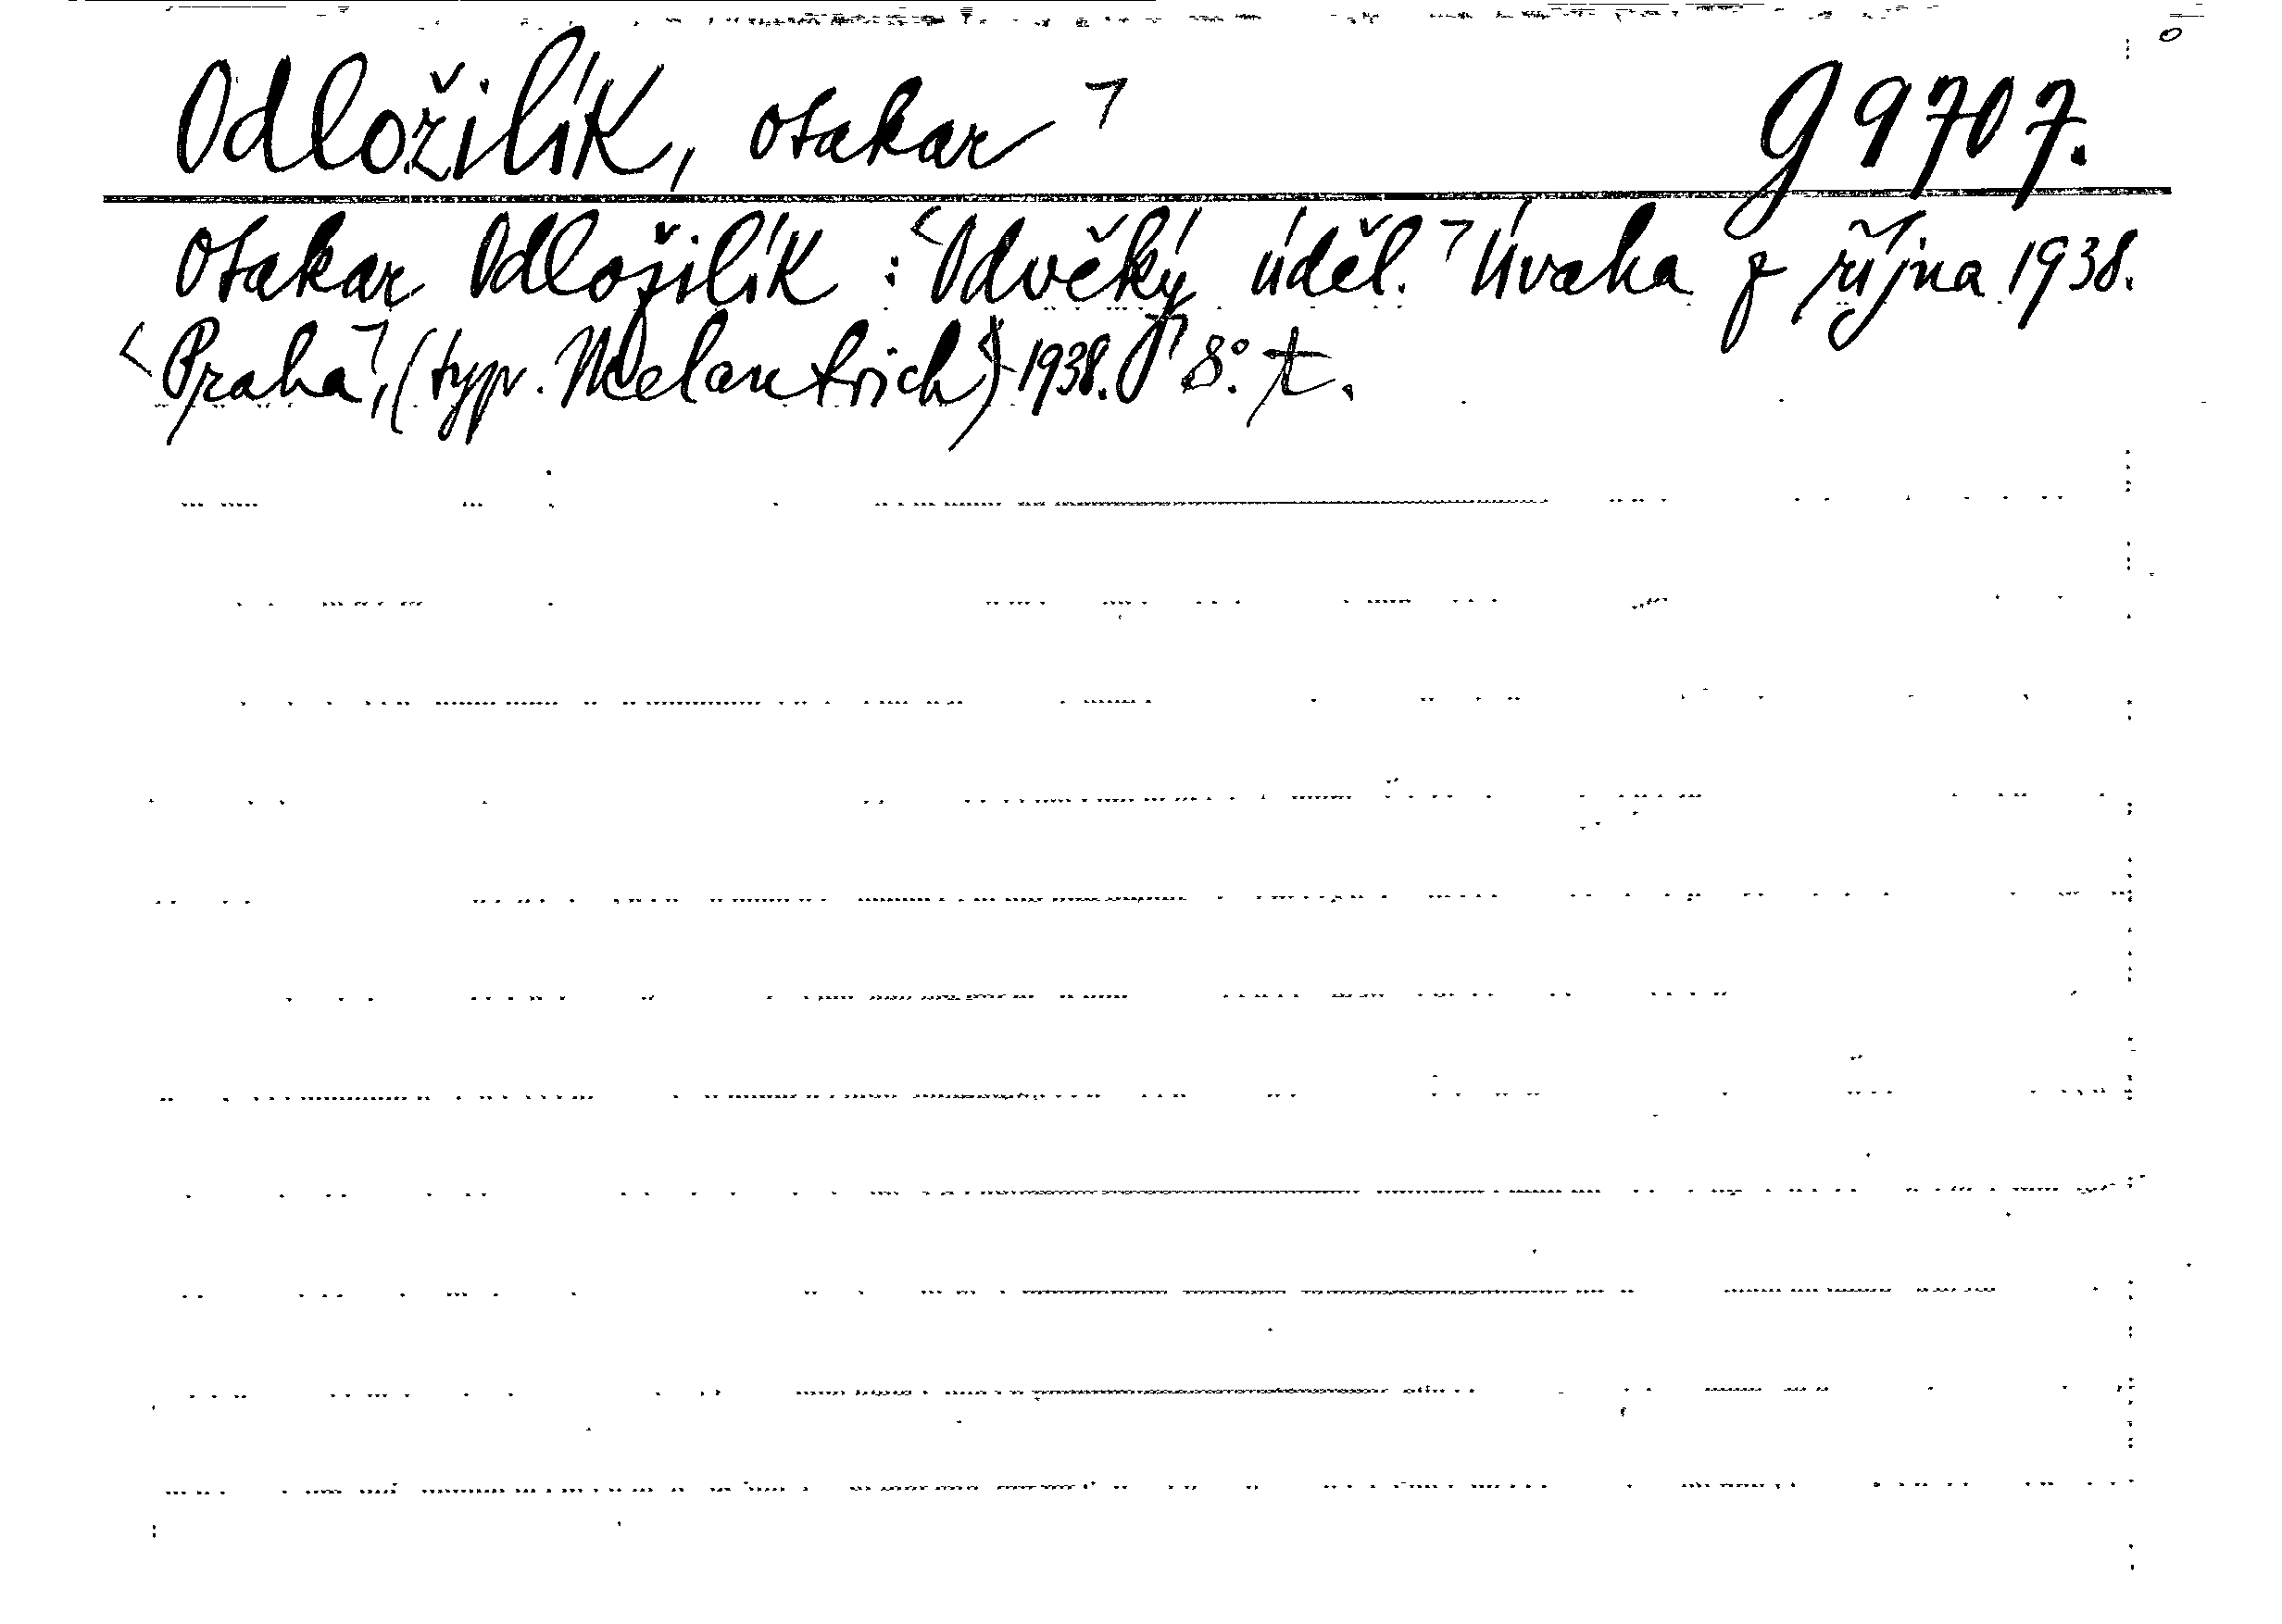 Odložilík, Otakar ⌝ G 9707.
Otakar Odložilík : <Odvěký úděl.⌝ Úvaha z října 1938.
<Praha⌝, (typ. Melantrich) 1938. 8°. t.